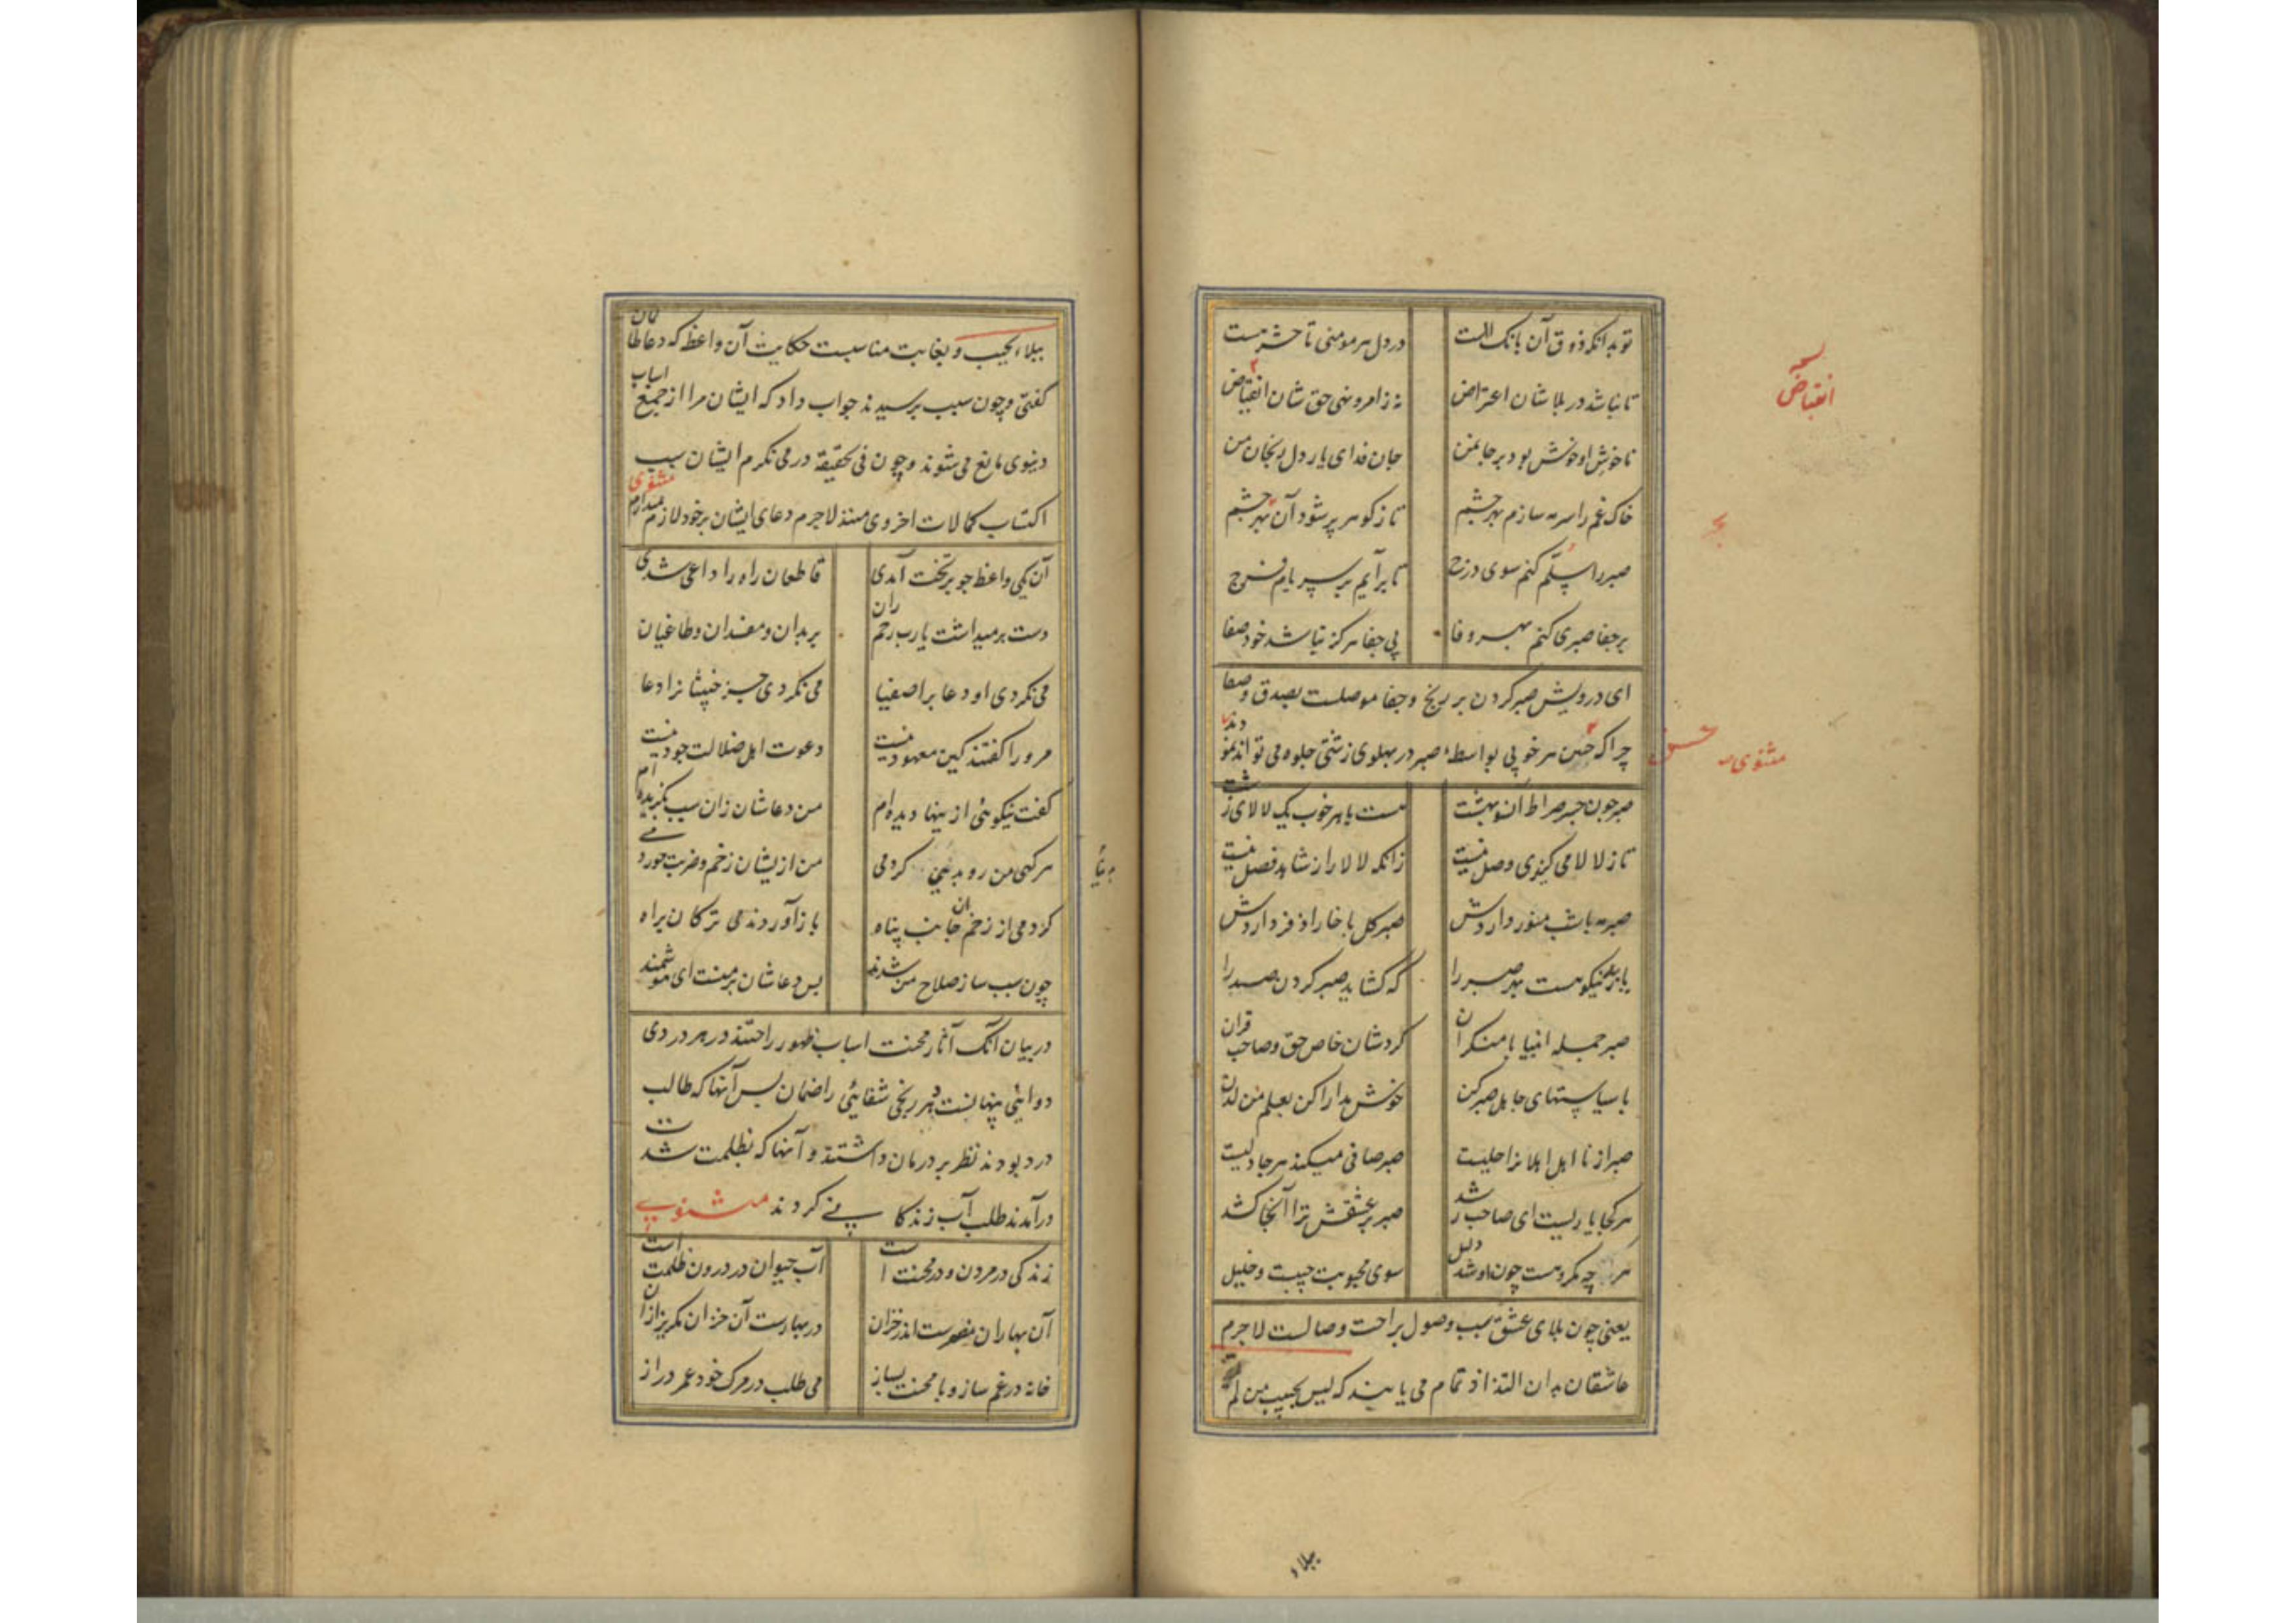 تو بدانکه ذوق آن بانک الست در دل هر مومنی تا حشر هست
تا نباشد در بلا شان اعتراض نه ز امر و نهی حق شان انقباض
ناخوش او خوش بود بر جان من جان فدای یار دل رنجان من
خاک غم را سرمه سازم بهر چشم تا ز کوهر پر شود آن بحر چشم
صبر را سلّم کنم سوی درج تا برآیم بر سر بام فرج
بر جفا صبری کنم بهر وفا بی جفا هرکز نباشد خود صفا
ای درویش صبر کردن بر رنج و جفا موصلست بصدق و صفا
چرا که حسن هر خوبی بواسطه صبر در پهلوی زشتی جلوه می تواند نمود
صبر چون جسر صراط آنسو بهشت هست با هر خوب یک لالای زشت
تا ز لالا می کریزی وصل نیست زانکه لالا را ز شاهد فصل نیست
صبر مه با شب منور داردش صبر کل با خار اذفر داردش
که کشاید صبر کردن صدر را
صبر جمله انبیا با منکران کردشان خاص حق و صاحب قران
با سیاستهای جاهل صبر کن خوش مدارا کن بعلم من لدن
صبر از نا اهل اهلانرا جلیست صبر صافی میکند هر جا دلیست
هر کجا یاریست ای صاحب رشد صبر بر عشقش ترا آنجا کشد
هر چه مکروهست چون او شد دلیل سوی محبوبت حبیبت و خلیل
یعنی چون بلای عشق سبب وصول براحت وصالست لاجرم
عاشقان بدان التذاذ تمام می یابند که لیس بحبیب من لم
ببلاء
نسخه
انقباض
بحر
حسن
مثنوی
ببلاء الحبیب و بغایت مناسبست حکایت آن واعظ که دعا ظالمان
کفتی و چون سبب پرسیدند جواب داد که ایشان مرا از جمیع اسباب
دنیوی مانع می شوند و چون فی الحقیقة در می نکرم ایشان سبب
اکتساب کمالات اخروی منند لاجرم دعای ایشان بر خود لازم میدارم مثنوی
آن یکی واعظ چو بر تخت آمدی قاطعان راه را داعی شدی
دست برمیداشت یا رب رحم ران بر بدان و مفسدان و طاغیان
می نکردی او دعا بر اصفیا می نکردی جز خبیثانرا دعا
مر ورا کفتند کین معهود نیست دعوت اهل ضلالت جود نیست
کفت نیکوئی از ینها دیده ام من دعاشان زان سبب بکزیده ام
هر کهی من رو بدنیی کردمی من ازیشان زخم و ضربت خوردمی
کردمی از زخم آن جانب پناه باز آوردندمی ترکان براه
چون سبب ساز صلاح من شدند پس دعاشان بر منست ای هوشمند
در بیان آنک آثار محنت اسباب ظهور راحتند در هر دردی
دوائی پنهانست و هر رنجی شفائی را ضمان پس آنها که طالب
درد بودند نظر بر درمان داشتند و آنها که بظلمت شدت
درآمدند طلب آب زندکانی کردند مثنوی
زندکی در مردن و در محنت است آب حیوان در درون ظلمت است
آن بهاران مضمرست اندر خزان در بهارست آن خزان مکریز از آن
خانه در غم ساز و با محنت بساز می طلب در مرک خود عمر دراز
دنیا